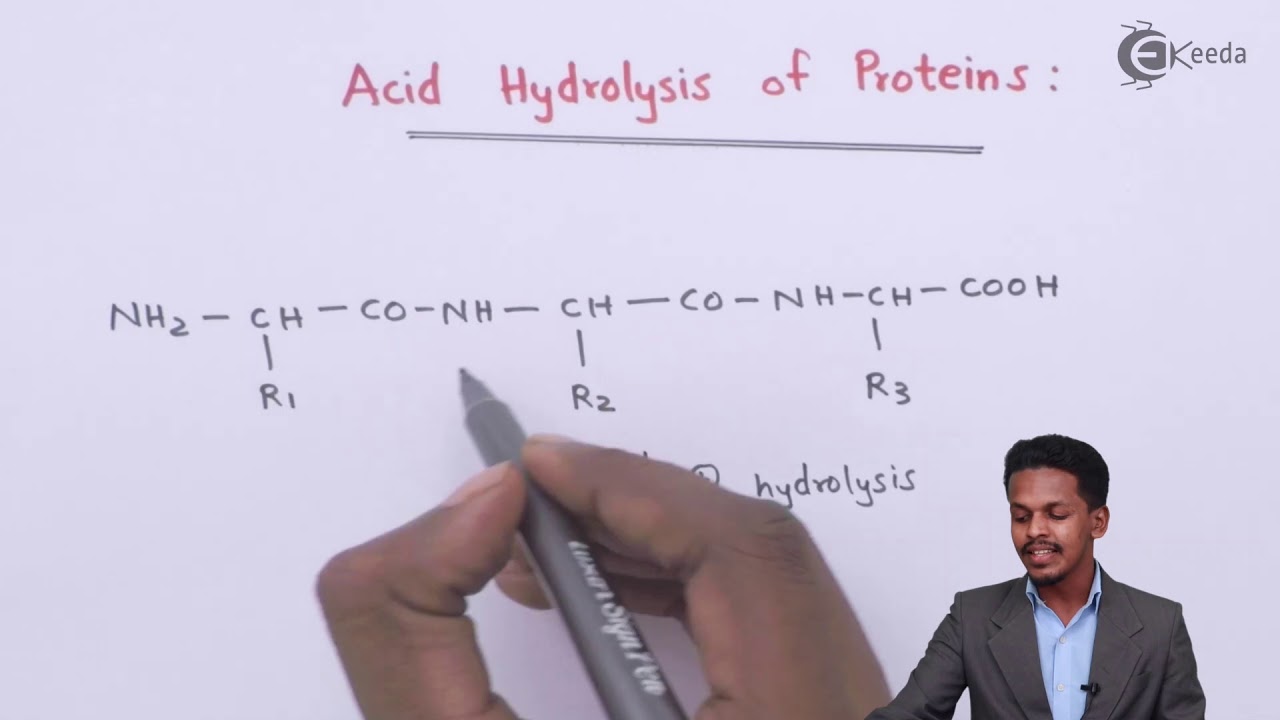 Keeda
Acid Hydrolysis of Proteins :
NH2 — CH — CO — NH — CH — CO — NH — CH — COOH
R1 R2 R3
hydrolysis
Luxor Sign Pen